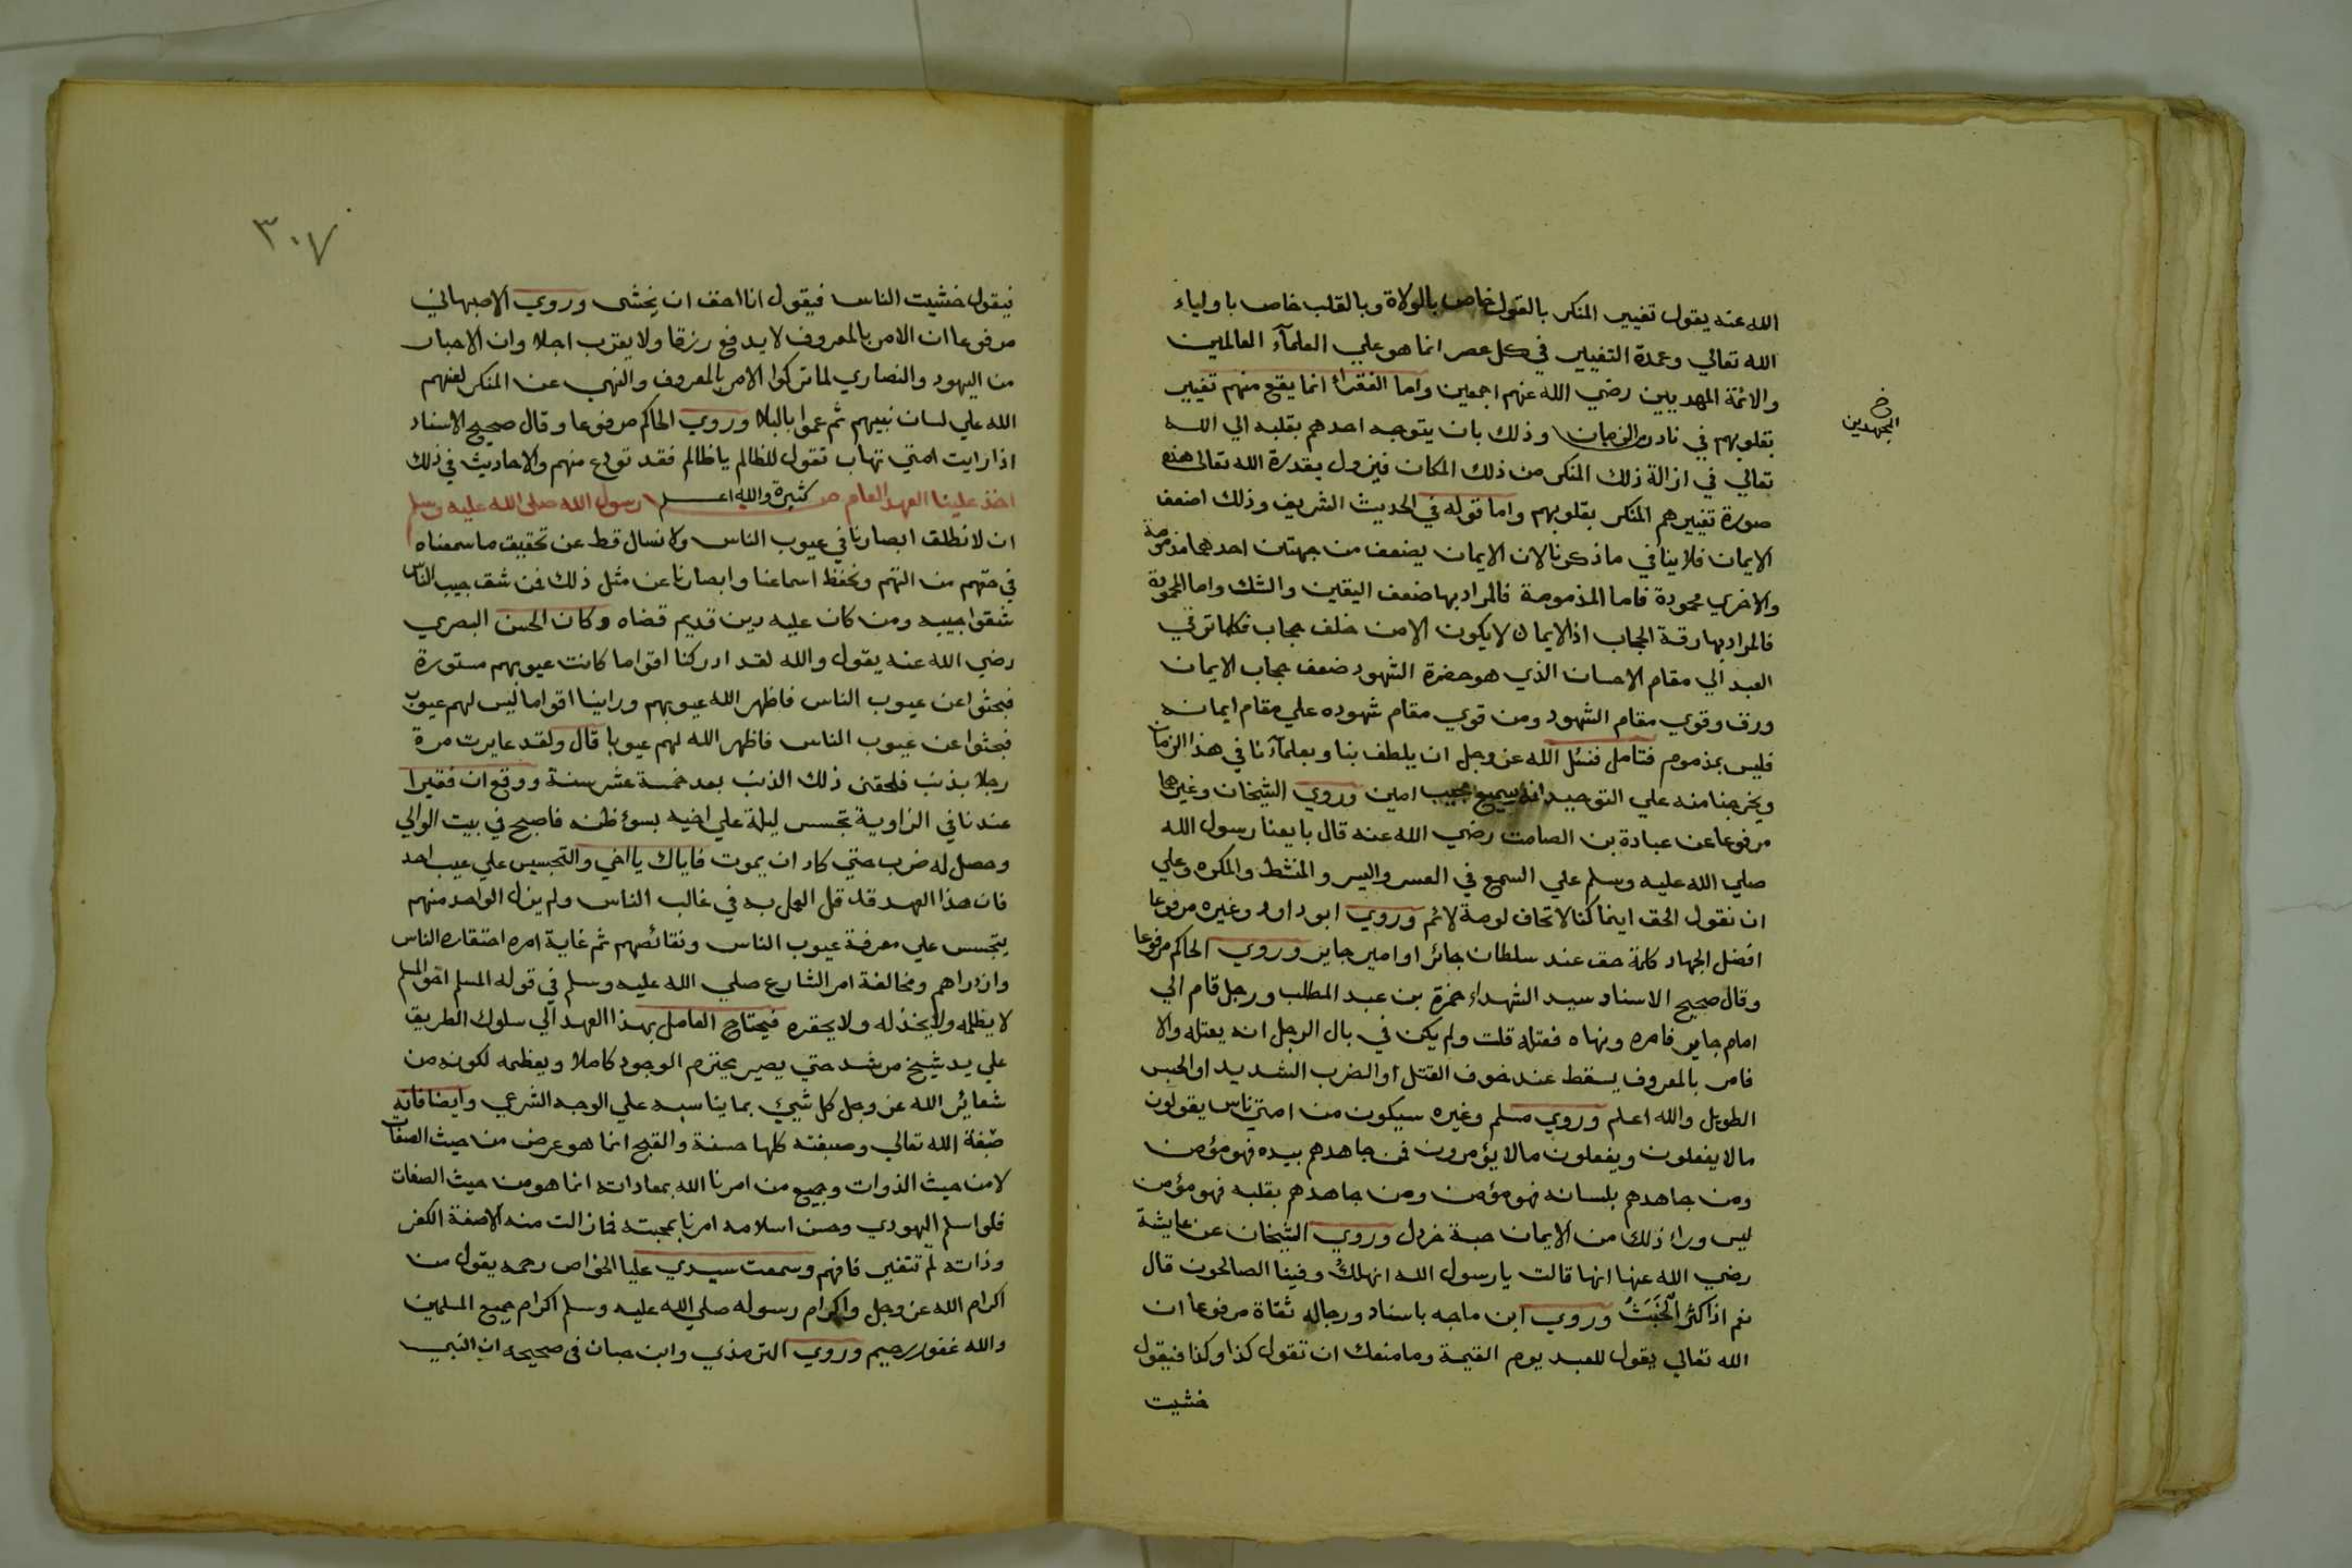 الله عنه يقول تغيير المنكر بالقول خاص بالولاة وبالقلب خاص باولياء
الله تعالي وعمدة التغيير في كل عصر انما هو علي العلمآء العالمين
والائمة المهديين رضي الله عنهم اجمعين واما الفقراء انما يقع منهم تغيير
المجتهدين
بقلوبهم في نادر الزمان وذلك بان يتوجه احدهم بقلبه الي الله
تعالي في ازالة ذلك المنكر من ذلك المكان فيزول بقدرة الله تعالى هذه
صورة تغييرهم المنكر بقلوبهم واما قوله في الحديث الشريف وذلك اضعف
الايمان فلا ينافي ما ذكرنا لان الايمان يضعف من جهتين احدهما مذمومة
والاخري محمودة فاما المذمومة فالمراد بها ضعف اليقين والشك واما المحمودة
فالمراد بها رقة الحجاب اذ الايمان لا يكون الا من خلف حجاب فكلما ترقي
العبد الي مقام الاحسان الذي هو حضرة الشهود ضعف حجاب الايمان
ورق وقوي مقام الشهود ومن قوي مقام شهوده علي مقام ايمانه
فليس بمذموم فتامل فنسئل الله عز وجل ان يلطف بنا وبعلمآءنا في هذا الزمان
ويخرجنا منه علي التوحيد انه سميع مجيب امين وروي الشيخان وغيرهما
مرفوعا عن عبادة بن الصامت رضي الله عنه قال بايعنا رسول الله
صلي الله عليه وسلم علي السمع في العسر واليسر والمنشط والمكره وعلي
ان نقول الحق اينما كنا لا نخاف لومة لائم وروي ابو داود وغيره مرفوعا
افضل الجهاد كلمة حق عند سلطان جائر او امير جاير وروي الحاكم مرفوعا
وقال صحيح الاسناد سيد الشهداء حمزة بن عبد المطلب ورجل قام الي
امام جاير فامره ونهاه فقتله قلت ولم يكن في بال الرجل انه يقتله والا
فامر بالمعروف يسقط عند خوف القتل او الضرب الشديد او الحبس
الطويل والله اعلم وروي مسلم وغيره سيكون من امتي ناس يقولون
مالا يفعلون ويفعلون مالا يؤمرون فمن جاهدهم بيده فهو مؤمن
ومن جاهدهم بلسانه فهو مؤمن ومن جاهدهم بقلبه فهو مؤمن
ليس وراء ذلك من الايمان حبة خردل وروي الشيخان عن عايشة
رضي الله عنها انها قالت يا رسول الله انهلك وفينا الصالحون قال
نعم اذا كثر الخَبَثُ وروي ابن ماجه باسناد ورجاله ثقاة مرفوعا ان
الله تعالي يقول للعبد يوم القيمة وما منعك ان تقول كذا وكذا فيقول
خشيت
٣٠٧
فيقول خشيت الناس فيقول انا احق ان يخشى وروي الاصبهاني
مرفوعا ان الامر بالمعروف لا يدفع رزقا ولا يقرب اجلا وان الاحبار
من اليهود والنصاري لما تركوا الامر بالمعروف والنهي عن المنكر لعنهم
الله علي لسان نبيهم ثم عموا بالبلاء وروي الحاكم مرفوعا وقال صحيح الاسناد
اذا رايت امتي تهاب تقول للظالم يا ظالم فقد تودع منهم والاحاديث في ذلك
كثيرة والله اعلم
اخذ علينا العهد العام من رسول الله صلى الله عليه وسلم
ان لا نطلق ابصارنا في عيوب الناس ولا نسال قط عن تحقيق ما سمعناه
في حقهم من التهم ونحفظ اسماعنا وابصارنا عن مثل ذلك فمن شق جيب الناس
شقوا جيبه ومن كان عليه دين قديم قضاه وكان الحسن البصري
رضي الله عنه يقول والله لقد ادركنا اقواما كانت عيوبهم مستورة
فبحثوا عن عيوب الناس فاظهر الله عيوبهم وراينا اقواما ليس لهم عيوب
فبحثوا عن عيوب الناس فاظهر الله لهم عيوبا قال ولقد عايرت مرة
رجلا بذنب فلحقني ذلك الذنب بعد خمسة عشر سنة ووقع ان فقيرا
عندنا في الزاوية تجسس ليلة علي اخيه بسوء ظنه فاصبح في بيت الوالي
وحصل له ضرب حتي كاد ان يموت فاياك يا اخي والتجسيس علي عيب احد
فان هذا العهد قد قل العمل به في غالب الناس ولم يزل الواحد منهم
يتجسس علي معرفة عيوب الناس ونقائصهم ثم غاية امره احتقاره الناس
وازدراهم ومخالفة امر الشارع صلي الله عليه وسلم في قوله المسلم اخو المسلم
لا يظلمه ولا يخذله ولا يحقره فيحتاج العامل بهذا العهد الي سلوك الطريق
علي يد شيخ مرشد حتي يصير يحترم الوجود كاملا ويعظمه لكونه من
شعائر الله عز وجل كل شيئ بما يناسبه علي الوجه الشرعي وايضا فانه
صبغة الله تعالي وصبغته كلها حسنة والقبح انما هو عرض من حيث الصفات
لا من حيث الذوات وجميع من امرنا الله بمعاداته انما هو من حيث الصفات
فلو اسلم اليهودي وحسن اسلامه امرنا بمحبته فما زالت منه الا صفة الكفر
وذاته لم تتغير فافهم وسمعت سيدي عليا الخواص رحمه يقول من
اكرام الله عز وجل واكرام رسوله صلي الله عليه وسلم اكرام جميع المسلمين
والله غفور رحيم وروي الترمذي وابن حبان في صحيحه ان النبي